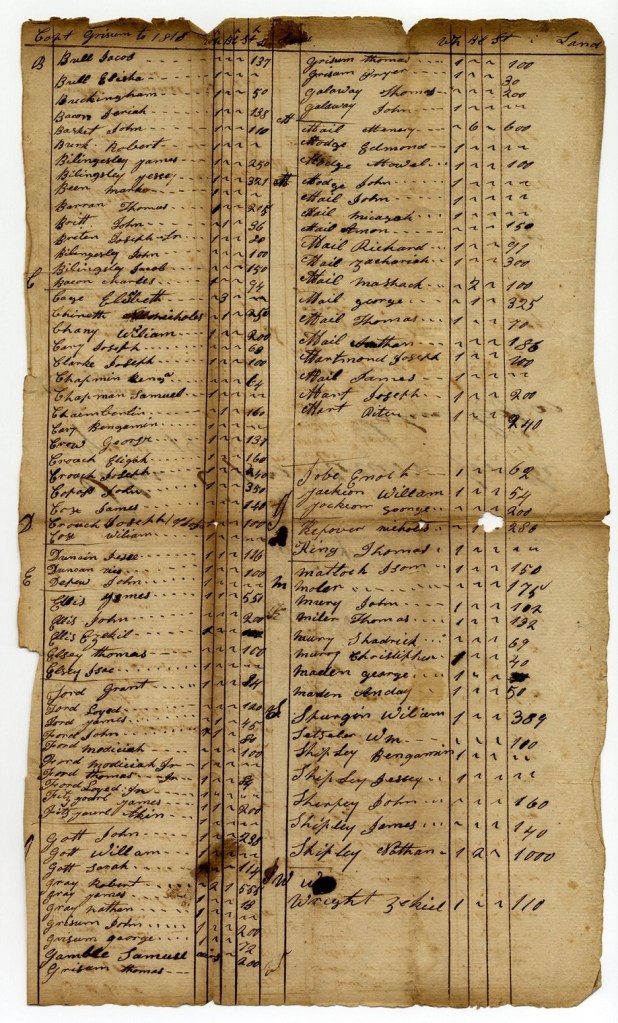 Capt Grisum to 1818 Wh Bl St Land
B Bull Jacob 1 137
Bull Elisha 1
Buckingham 1 50
Bacon Jeriah 1 138
Basket John 1 110
Burk Robert 1
Bilingesley James 250
Bilingsley Jessy 321
Been
Barran Thomas 215
Britt John 1 36
Briten Joseph Jn 20
Bilingsley John 100
Bilingsley Jacob 150
C Bacon Charles 94
Cage Elisbeth 3
Chineth Nicholes 1 250
Chany William 200
Cary Joseph 1 68
Clarke Joseph 1 100
Chapmin 64
Chapman Samuel
Chaimberlin 160
Cary Bengamin
Crow George 1 131
Crouch Eligah 1 160
Crouch Joseph 240
John 350
Cox James 1 140
D Crouch Joseph 100
Cox Wiliam
Duncain Jesse 1 116
Duncan 100
E Depew John
Ellis James 1 551
Ellis John 1 200
Ellis Ezekil
Elsey thomas 100
Elsey Isac
Ford Grant 1 84
Ford Loyed 120
Ford James 45
Ford John
Ford Modiciah 100
Ford Modiciah Jn
Ford thomas Jn
Ford Loyed Jn
James
200
Gott John 1 238
Gott William
Gott Sarah 114
Gray Robert 2 1 555
Gray James 18
Gray nathan
Grisum John 200
Grisum george 72
Gamble Samuel 200
Grisum thomas
Land Wh Bl St Land
Grisum thomas 1 100
Grisam 30
Galaway Thomas 200
Galaway John 1
H Hail Henery 6 600
Hodge Edmond
Hodge Howel 1 100
H Hodge John 1
Hail John 1
Hail Micagah
Hail Amon 150
Hail Richard 1
Hail Zachariah 300
Hail Mashack 2 100
Hail George 1 325
Hail Thomas 1 70
Hail Nathan 186
Hartmond Joseph 1 200
Hail James
Hart Joseph 1 200
Hart 1 240
Jobe Enoch 1 62
Jackson William 1 54
Jackson George 200
Kepover Nicholes 1 286
King Thomas 1
M Matlock Isom 1 150
175
Mury John 1 102
Miler Thomas 1 132
Mury Shadrick 69
Mury Christipher 40
Maden george
Maden Anday 50
S Spurgin Wiliam 1 389
Setseler Wm 100
Shipley Bengamin 1
Shipley Jessey
John 160
Shipley James 1 140
Shipley Nathan 1 2 1000
W
Wright Zekiel 1 110